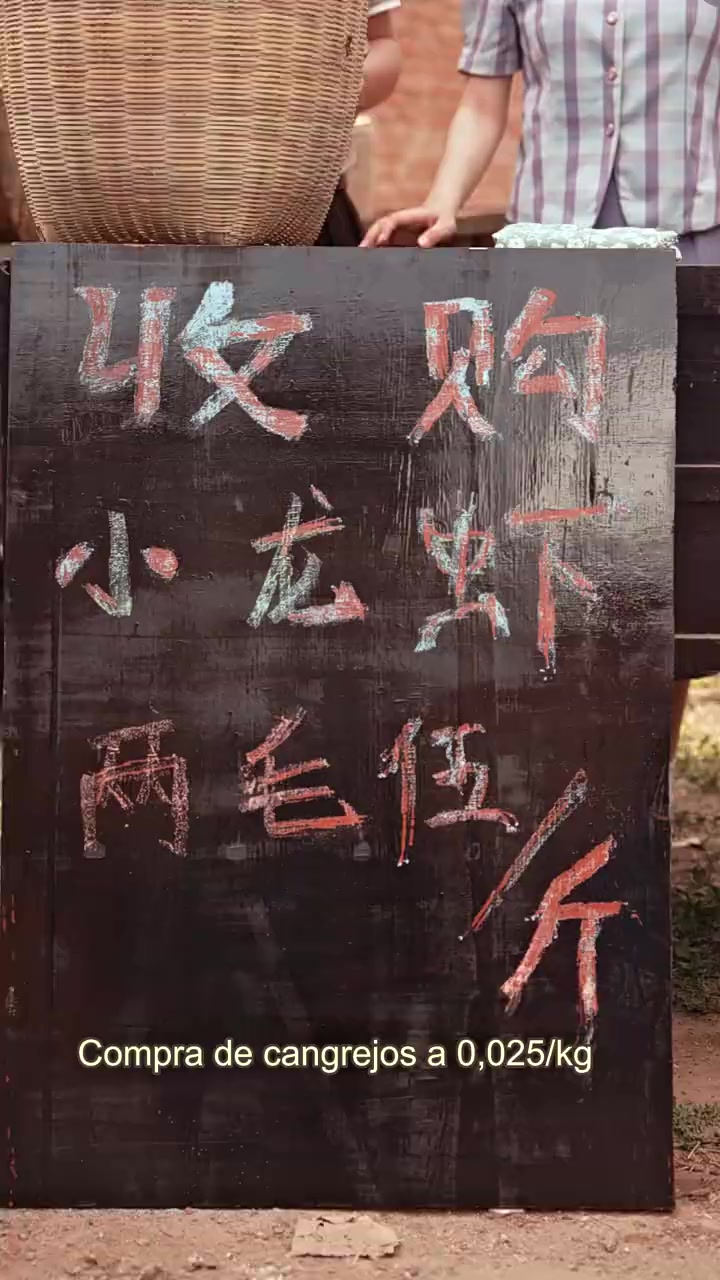 收购
小龙虾
两毛伍/斤
Compra de cangrejos a 0,025/kg